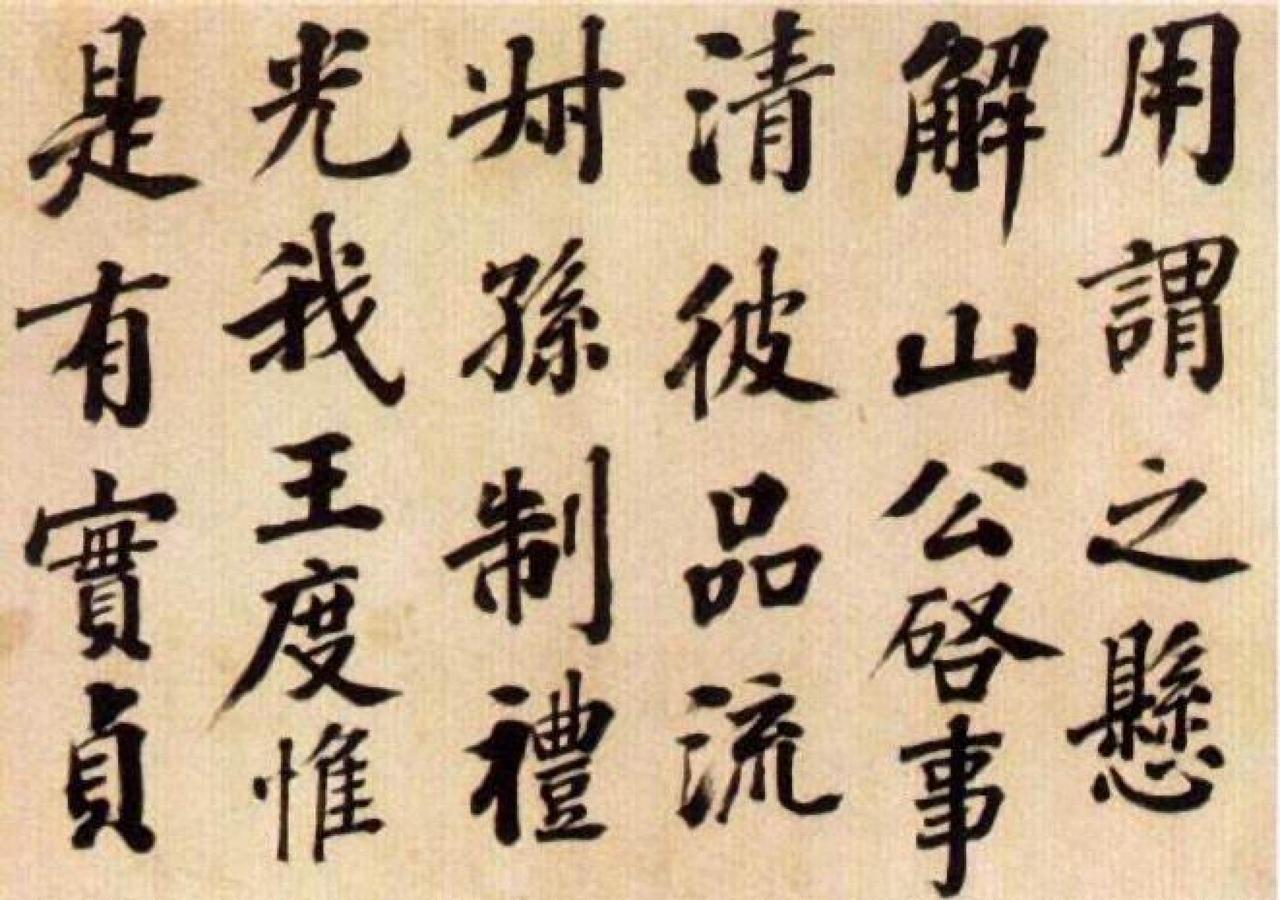 用謂之懸
解山公啓事
清彼品流
叔孫制禮
光我王度惟
是有實貞